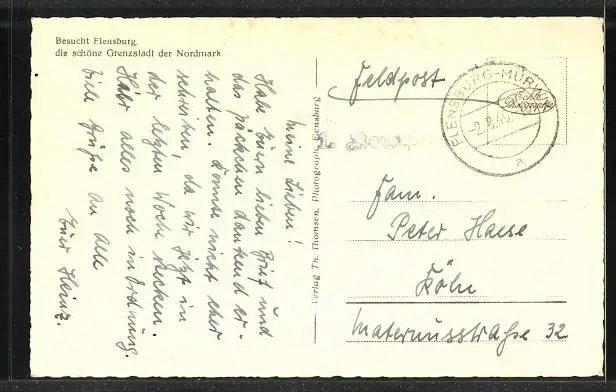 Besucht Flensburg,
die schöne Grenzstadt der Nordmark
Meine Lieben!
Habe Euern lieben Brief und
das Päckchen dankend er-
halten. Konnte nicht eher
schreiben, da wir jetzt in
der letzten Woche stecken.
Habe alles noch in Ordnung.
Viele Grüße an alle
Euer Heinz.
Verlag Th. Thomsen, Photograph, Flensburg
Feldpost
FLENSBURG-MÜRW
-2.8.40.
a
Echte
Photographie
Fam.
Peter Haese
Köln
Maternusstraße 32